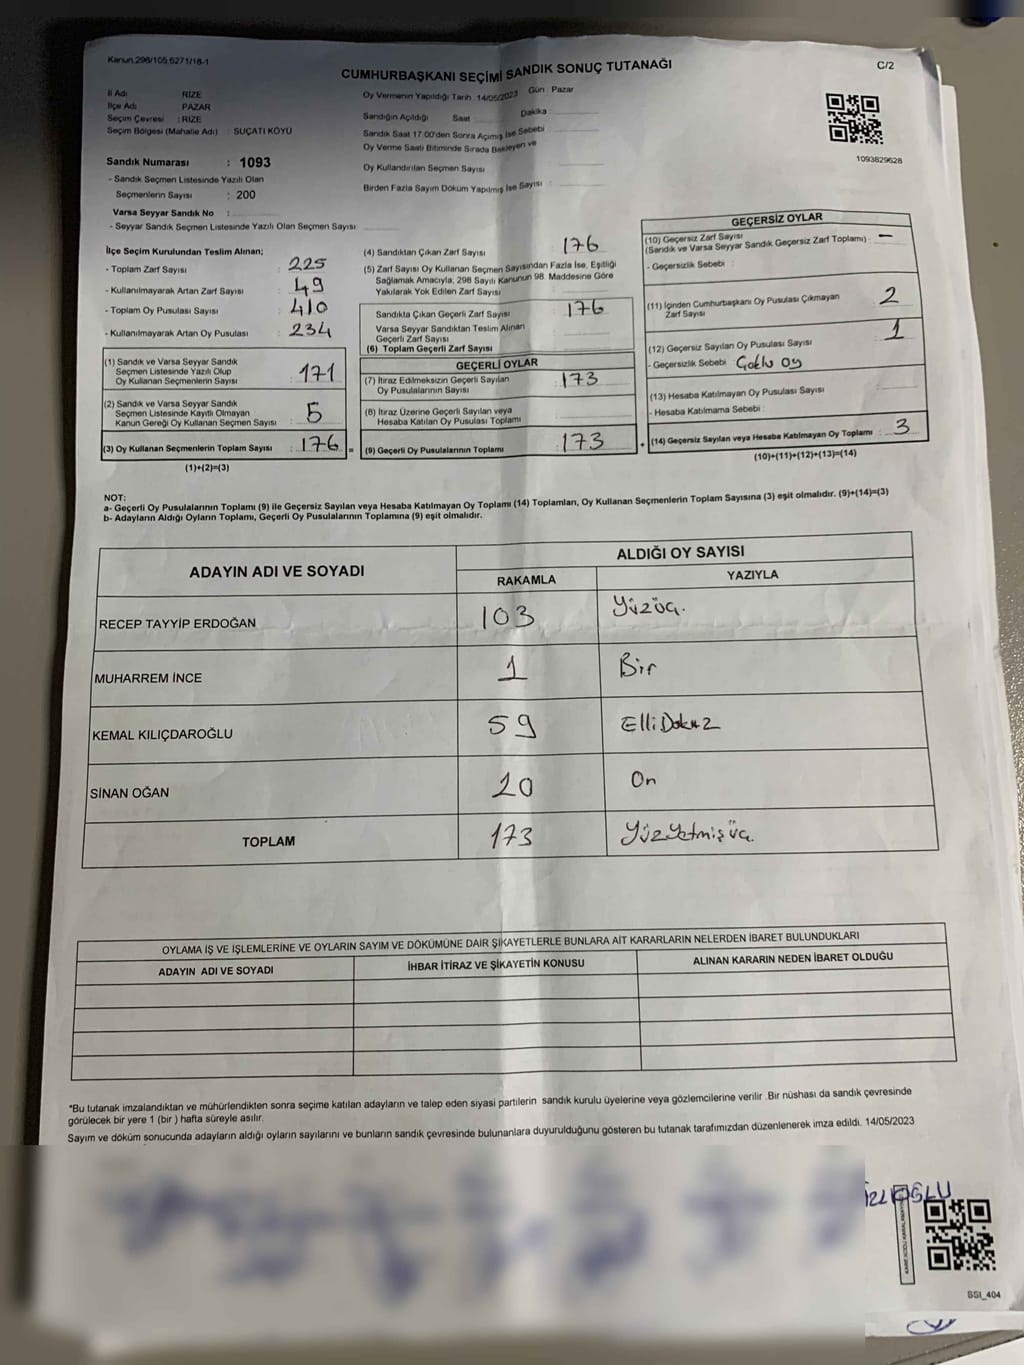 Kanun.298/105;6271/18-1
CUMHURBAŞKANI SEÇİMİ SANDIK SONUÇ TUTANAĞI
C/2
İl Adı RİZE
İlçe Adı PAZAR
Seçim Çevresi : RİZE
Seçim Bölgesi (Mahalle Adı) : SUÇATI KÖYÜ
Oy Vermenin Yapıldığı Tarih 14/05/2023 Gün : Pazar
Sandığın Açıldığı Saat Dakika
Sandık Saat 17.00'den Sonra Açımış İse Sebebi
Oy Verme Saati Bitiminde Sırada Bekleyen ve
Oy Kullandırılan Seçmen Sayısı
Birden Fazla Sayım Döküm Yapılmış İse Sayısı :
1093829628
Sandık Numarası : 1093
- Sandık Seçmen Listesinde Yazılı Olan
Seçmenlerin Sayısı : 200
Varsa Seyyar Sandık No :
- Seyyar Sandık Seçmen Listesinde Yazılı Olan Seçmen Sayısı
İlçe Seçim Kurulundan Teslim Alınan;
- Toplam Zarf Sayısı : 225
- Kullanılmayarak Artan Zarf Sayısı : 49
- Toplam Oy Pusulası Sayısı : 410
- Kullanılmayarak Artan Oy Pusulası : 234
(1) Sandık ve Varsa Seyyar Sandık
Seçmen Listesinde Yazılı Olup
Oy Kullanan Seçmenlerin Sayısı : 171
(2) Sandık ve Varsa Seyyar Sandık
Seçmen Listesinde Kayıtlı Olmayan
Kanun Gereği Oy Kullanan Seçmen Sayısı : 5
(3) Oy Kullanan Seçmenlerin Toplam Sayısı : 176 =
(1)+(2)=(3)
(4) Sandıktan Çıkan Zarf Sayısı 176
(5) Zarf Sayısı Oy Kullanan Seçmen Sayısından Fazla İse, Eşitliği
Sağlamak Amacıyla, 298 Sayılı Kanunun 98. Maddesine Göre
Yakılarak Yok Edilen Zarf Sayısı
Sandıkta Çıkan Geçerli Zarf Sayısı 176
Varsa Seyyar Sandıktan Teslim Alınan
Geçerli Zarf Sayısı
(6) Toplam Geçerli Zarf Sayısı
GEÇERLİ OYLAR
(7) İtiraz Edilmeksizin Geçerli Sayılan
Oy Pusulasının Sayısı 173
(8) İtiraz Üzerine Geçerli Sayılan veya
Hesaba Katılan Oy Pusulası Toplamı
(9) Geçerli Oy Pusulalarının Toplamı 173 +
GEÇERSİZ OYLAR
(10) Geçersiz Zarf Sayısı
(Sandık ve Varsa Seyyar Sandık Geçersiz Zarf Toplamı) : —
- Geçersizlik Sebebi :
(11) İçinden Cumhurbaşkanı Oy Pusulası Çıkmayan
Zarf Sayısı 2
(12) Geçersiz Sayılan Oy Pusulası Sayısı 1
- Geçersizlik Sebebi Çoklu oy
(13) Hesaba Katılmayan Oy Pusulası Sayısı
- Hesaba Katılmama Sebebi :
(14) Geçersiz Sayılan veya Hesaba Katılmayan Oy Toplamı : 3
(10)+(11)+(12)+(13)=(14)
NOT:
a- Geçerli Oy Pusulalarının Toplamı (9) ile Geçersiz Sayılan veya Hesaba Katılmayan Oy Toplamı (14) Toplamları, Oy Kullanan Seçmenlerin Toplam Sayısına (3) eşit olmalıdır. (9)+(14)=(3)
b- Adayların Aldığı Oyların Toplamı, Geçerli Oy Pusulalarının Toplamına (9) eşit olmalıdır.
ADAYIN ADI VE SOYADI ALDIĞI OY SAYISI
RAKAMLA YAZIYLA
RECEP TAYYİP ERDOĞAN 103 Yüzüç.
MUHARREM İNCE 1 Bir
KEMAL KILIÇDAROĞLU 59 Elli Dokuz
SİNAN OĞAN 10 On
TOPLAM 173 YüzYetmişüç.
OYLAMA İŞ VE İŞLEMLERİNE VE OYLARIN SAYIM VE DÖKÜMÜNE DAİR ŞİKAYETLERLE BUNLARA AİT KARARLARIN NELERDEN İBARET BULUNDUKLARI
ADAYIN ADI VE SOYADI İHBAR İTİRAZ VE ŞİKAYETİN KONUSU ALINAN KARARIN NEDEN İBARET OLDUĞU
*Bu tutanak imzalandıktan ve mühürlendikten sonra seçime katılan adayların ve talep eden siyasi partilerin sandık kurulu üyelerine veya gözlemcilerine verilir .Bir nüshası da sandık çevresinde
görülecek bir yere 1 (bir ) hafta süreyle asılır.
Sayım ve döküm sonucunda adayların aldığı oyların sayılarını ve bunların sandık çevresinde bulunanlara duyurulduğunu gösteren bu tutanak tarafımızdan düzenlenerek imza edildi. 14/05/2023
SSI_404